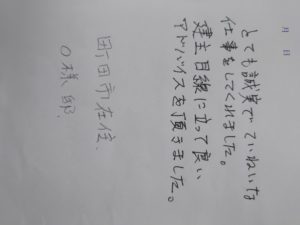 月 日
とても誠実でていねいな
仕事をしてくれました。
建主目線に立って良い
アドバイスを頂きました。
町田市在住
O様邸